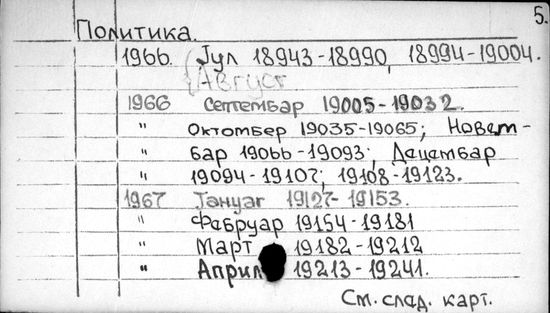 5.
Политика.
1966. Јул 18943-18990, 18994-19004.
Август
1966 Септембар 19005-19032.
" Октомбер 19035-19065; Новем-
бар 19066-19093; Децембар
19094-19107; 19108-19123.
1967 Јануар 19127-19153.
" Фабруар 19154-19181
" Март 19182-19212
" Април 19213-19241.
См. след. карт.